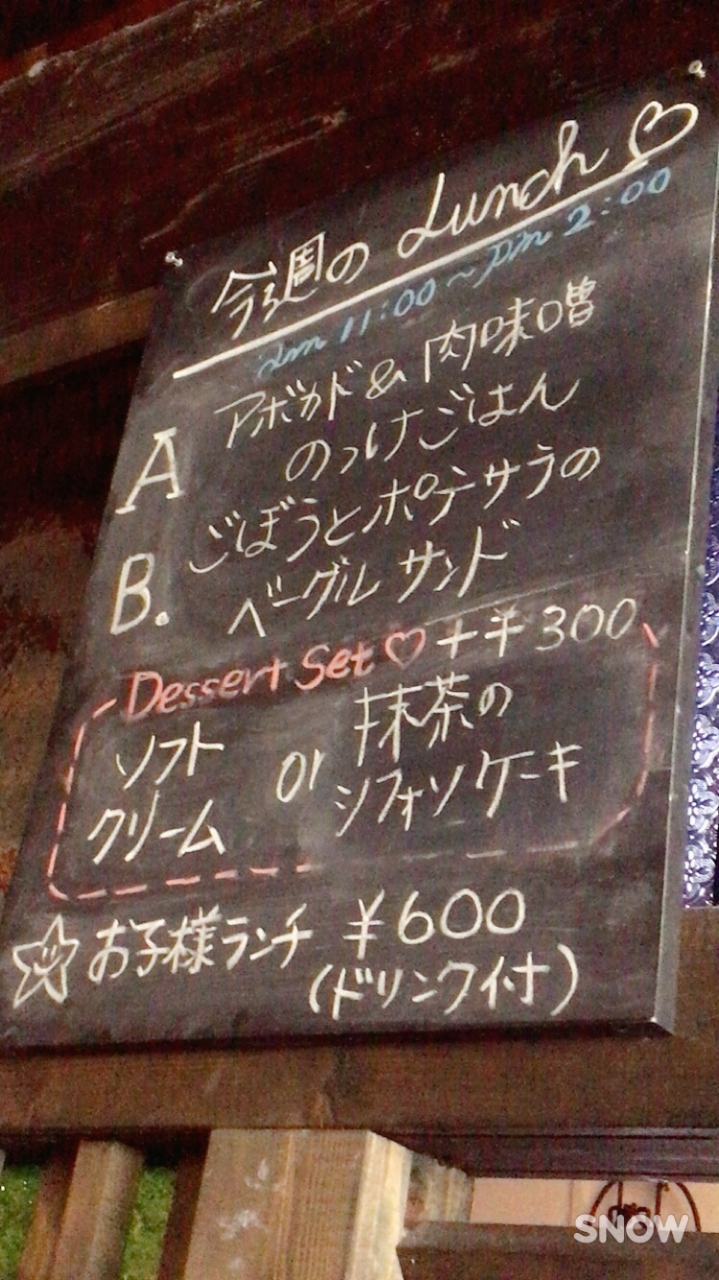 今週の Lunch♡
am 11:00 ~ pm 2:00
A アボカド & 肉味噌
のっけごはん
B. ごぼうとポテサラの
ベーグル サンド
Dessert Set♡ +¥300
ソフト
クリーム
or
抹茶の
シフォンケーキ
☆お子様ランチ ¥600
(ドリンク付)
SNOW